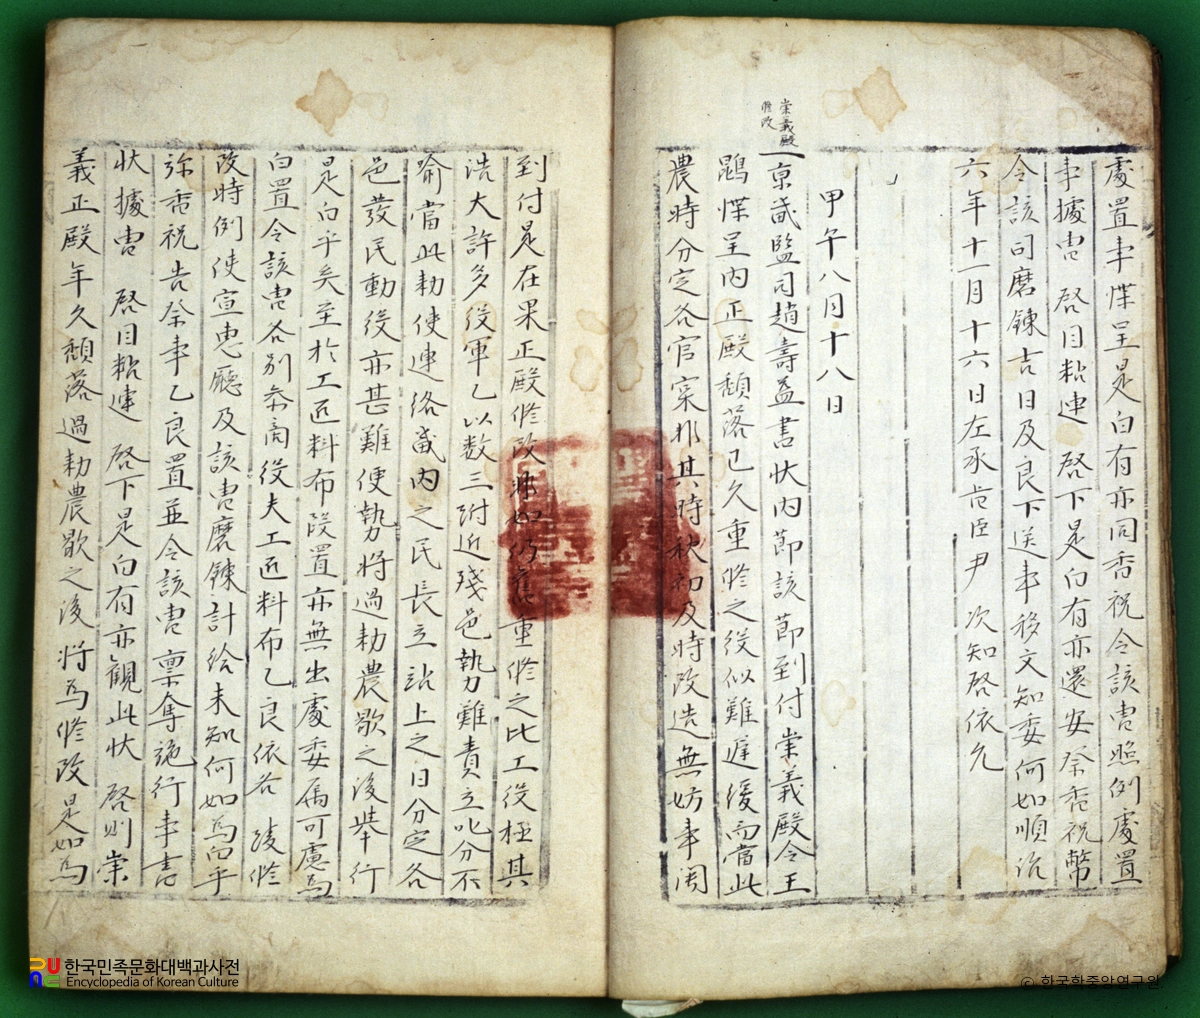 處置事牒呈是白有亦同香祝令該曺照例處置
事據曺 啓目粘連 啓下是白有亦還安祭香祝幣
令該司磨鍊吉日及良下送事移文知委何如順治
六年十一月十六日左承旨臣尹 次知啓依允
甲午八月十八日
崇義殿
修改
一京畿監司趙壽益書狀內節該節到付崇義殿令王
鵾牒呈內正殿頹落已久重修之役似難遲緩而當此
農時分定各官寔非其時秋初及時改造無妨事關
到付是在果正殿修改非如仍舊重修之比工役極其
浩大許多役軍乙以數三附近殘邑勢難責立叱分不
喻當此勅使連絡畿內之民長立站上之日分定各
邑發民動役亦甚難便勢將過勅農歇之後擧行
是白乎矣至於工匠料布段置亦無出處委屬可慮爲
白置令該曺各別參商役夫工匠料布乙良依各 陵修
改時例使宣惠廳及該曺磨鍊計給未知何如爲白乎
弥香祝告祭事乙良置並令該曺稟奪施行事書
狀據曺 啓目粘連 啓下是白有亦觀此狀 啓則崇
義正殿年久頹落過勅農歇之後將爲修改是如爲
한국민족문화대백과사전
Encyclopedia of Korean Culture
© 한국학중앙연구원